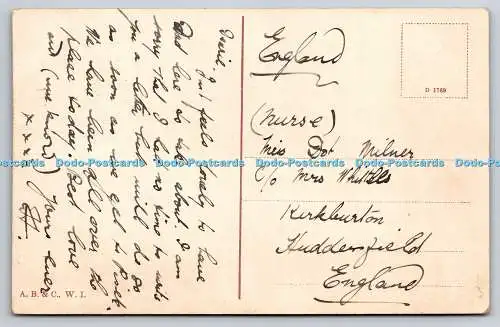 Desire. Just feels lonely to have
had love as he's about. I am
sorry that I have no time to write
you a letter but will do so
as soon as we get to Port.
We have been all over the
place today. Best love
and (we know) Yours ever
x x x
England
D 1769
(Nurse)
Miss Dot Milner
c/o Mrs Whittles
Kirkburton
Huddersfield
England
A. B. & C., W. I.
Dodo-Postcards Dodo-Postcards Dodo-Postcards Dodo-Postcards Dodo-Postcards Dodo-Postcards